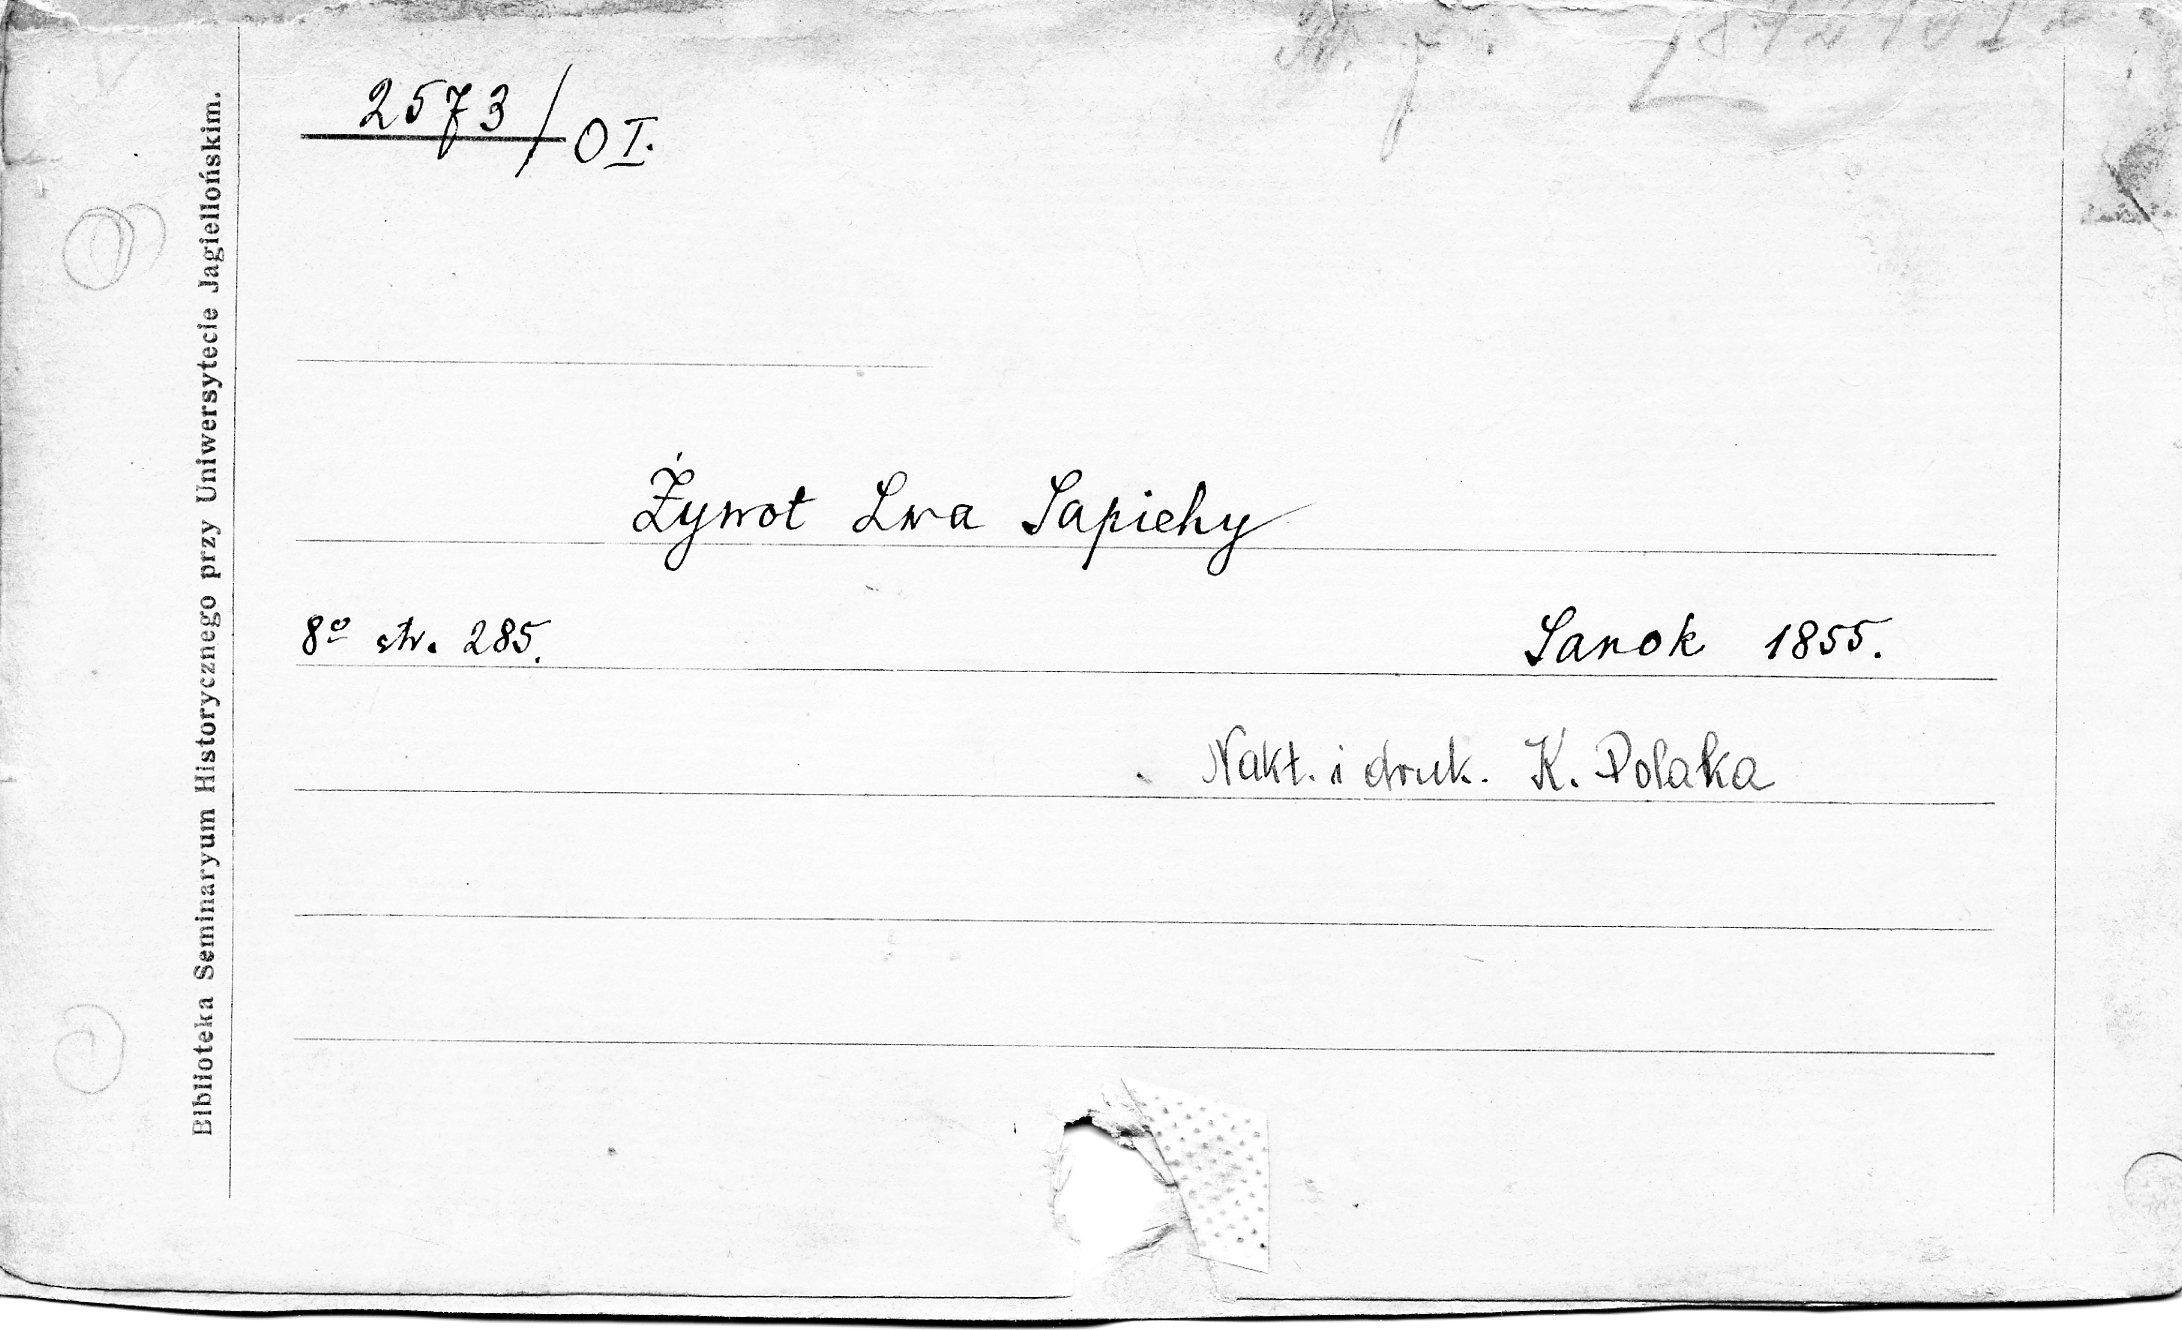 2573/OI.
Biblioteka Seminaryum Historycznego przy Uniwersytecie Jagiellońskim.
Żywot Lwa Sapiehy
8º str. 285.
Sanok 1855.
Nakł. i druk. K. Polaka